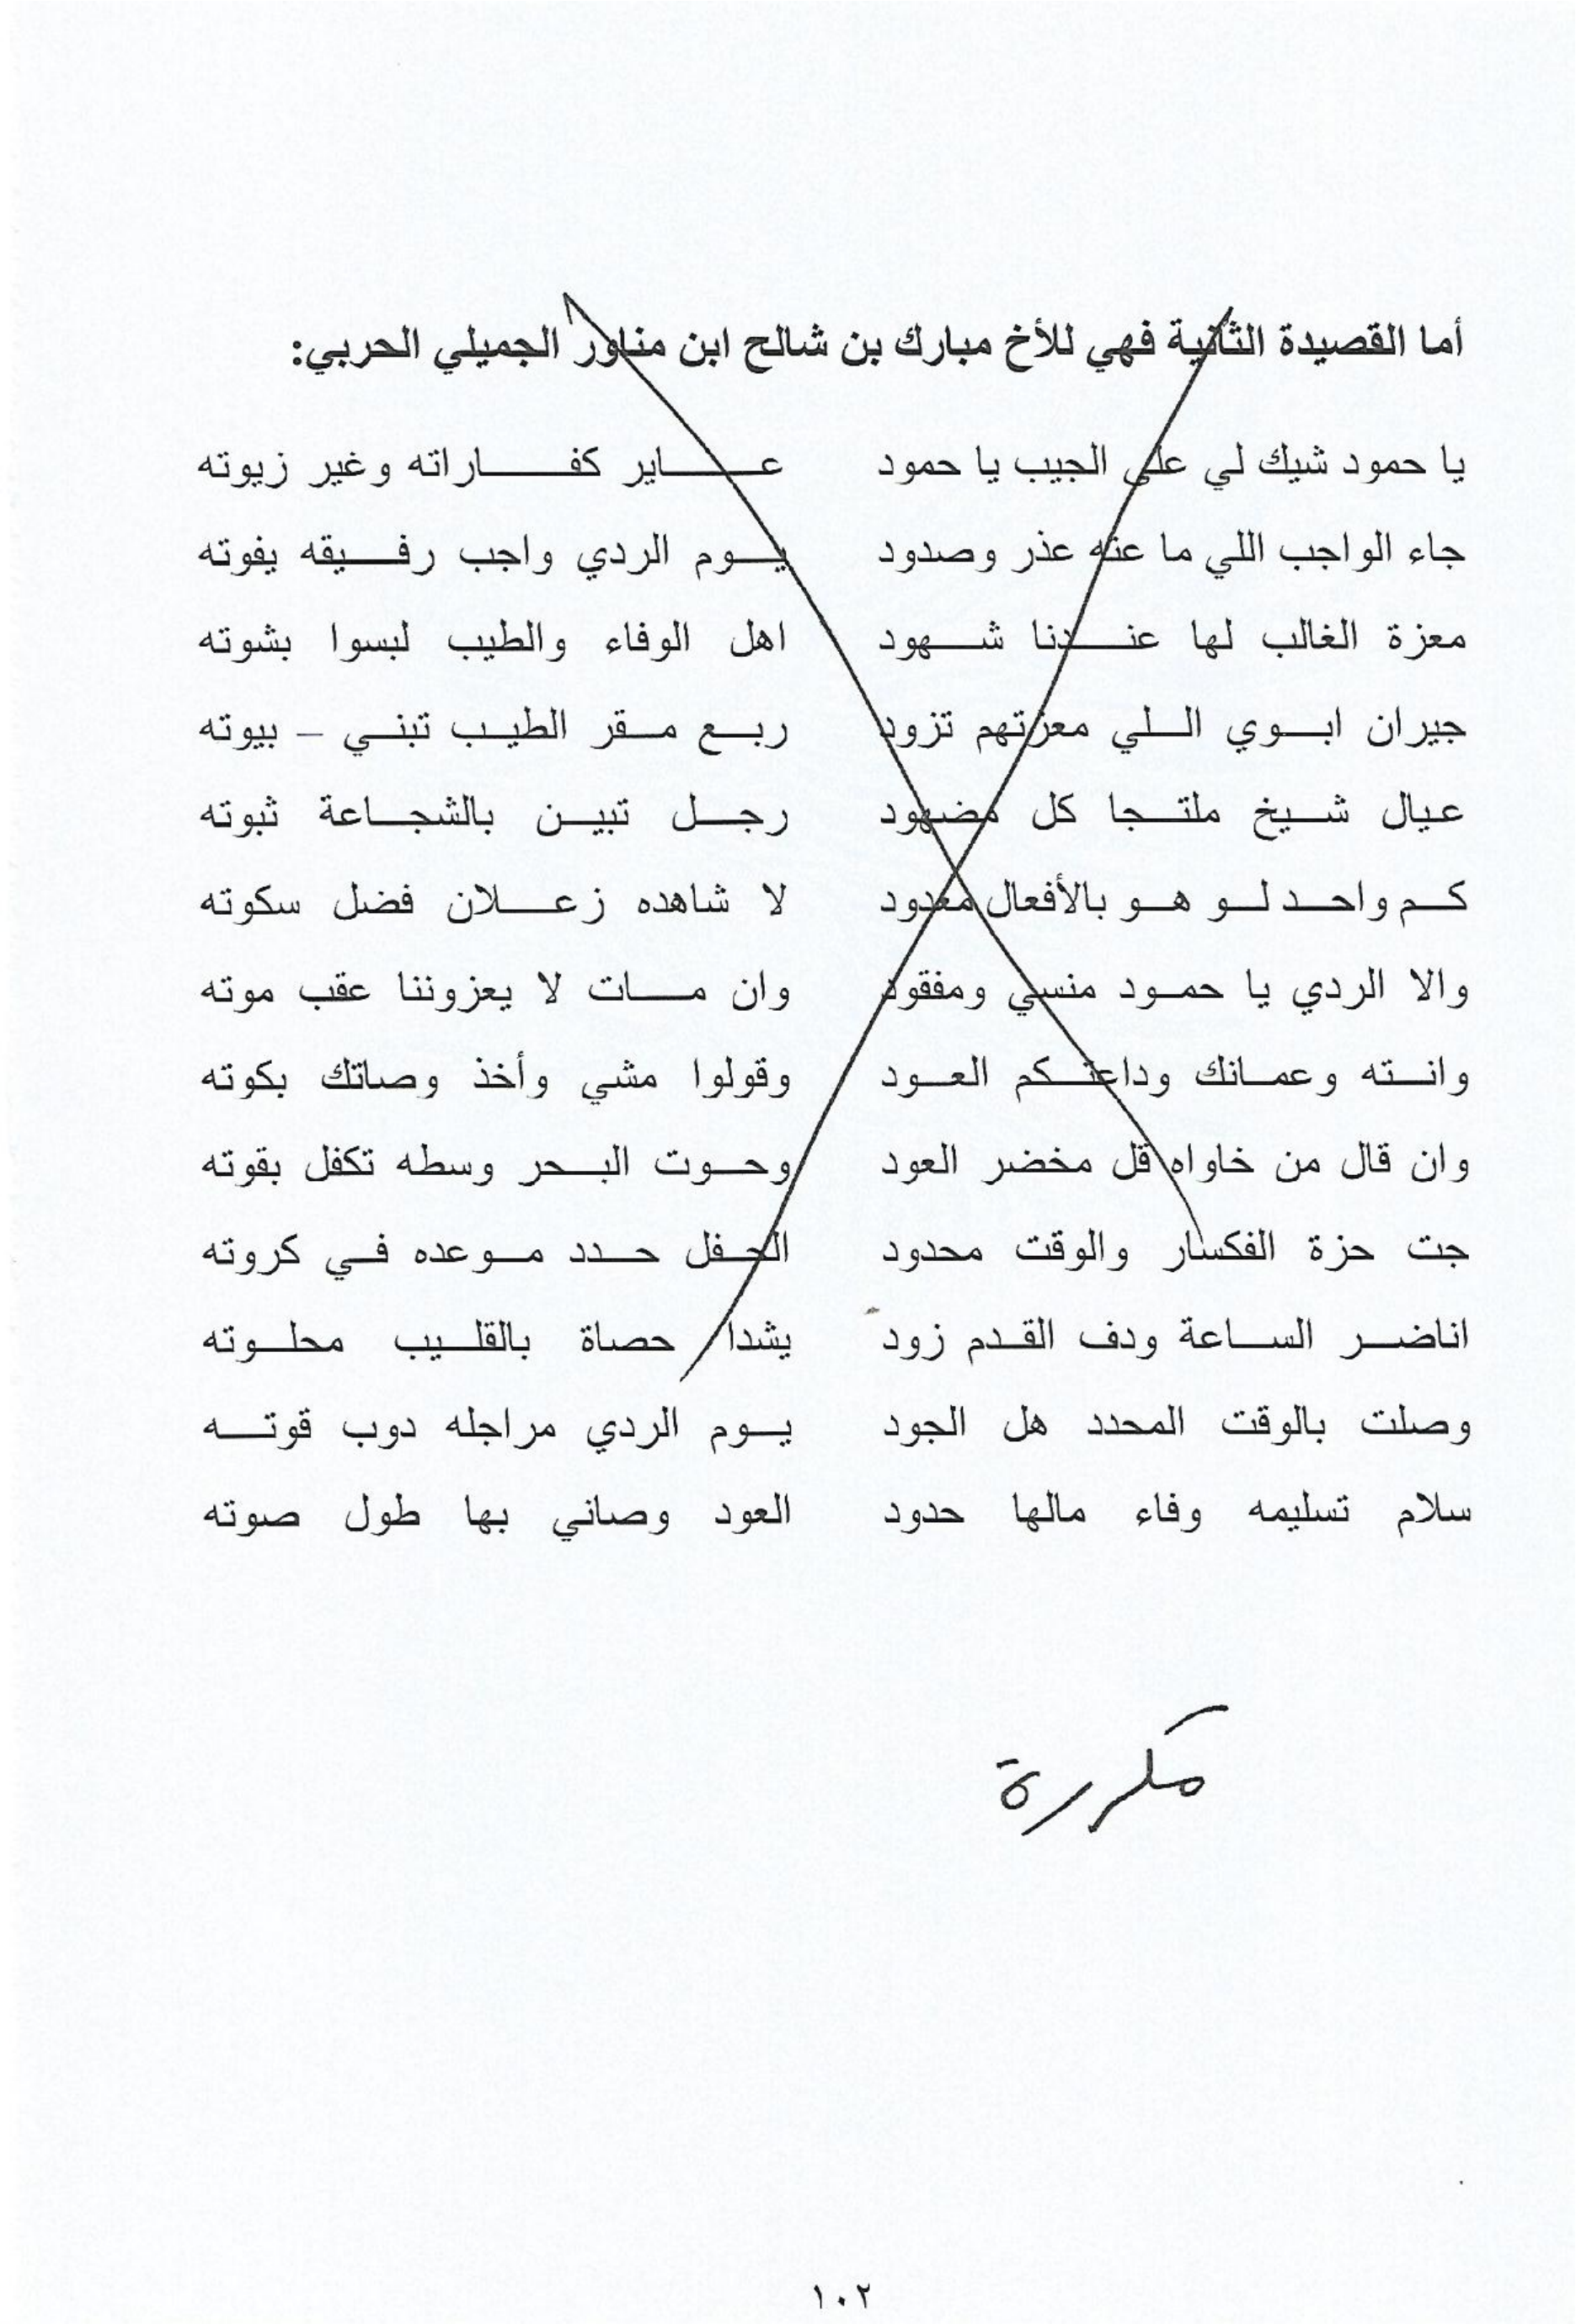 أما القصيدة الثانية فهي للأخ مبارك بن شالح ابن مناور الجميلي الحربي:
يا حمود شيك لي على الجيب يا حمود عاير كفاراته وغير زيوته
جاء الواجب اللي ما عنه عذر وصدود يوم الردي واجب رفيقه يفوته
معزة الغالب لها عندنا شهود اهل الوفاء والطيب لبسوا بشوته
جيران ابوي اللي معزتهم تزود ربع مقر الطيب تبني – بيوته
عيال شيخ ملتجا كل مضهود رجل تبين بالشجاعة ثبوته
كم واحد لو هو بالأفعال معدود لا شاهده زعلان فضل سكوته
والا الردي يا حمود منسي ومفقود وان مات لا يعزوننا عقب موته
وانته وعمانك وداعتكم العود وقولوا مشي وأخذ وصاتك بكوته
وان قال من خاواه قل مخضر العود وحوت البحر وسطه تكفل بقوته
جت حزة الفكسار والوقت محدود الحفل حدد موعده في كروته
اناضر الساعة ودف القدم زود يشدا حصاة بالقليب محلوته
وصلت بالوقت المحدد هل الجود يوم الردي مراجله دوب قوته
سلام تسليمه وفاء مالها حدود العود وصاني بها طول صوته
مكررة
١٠٢